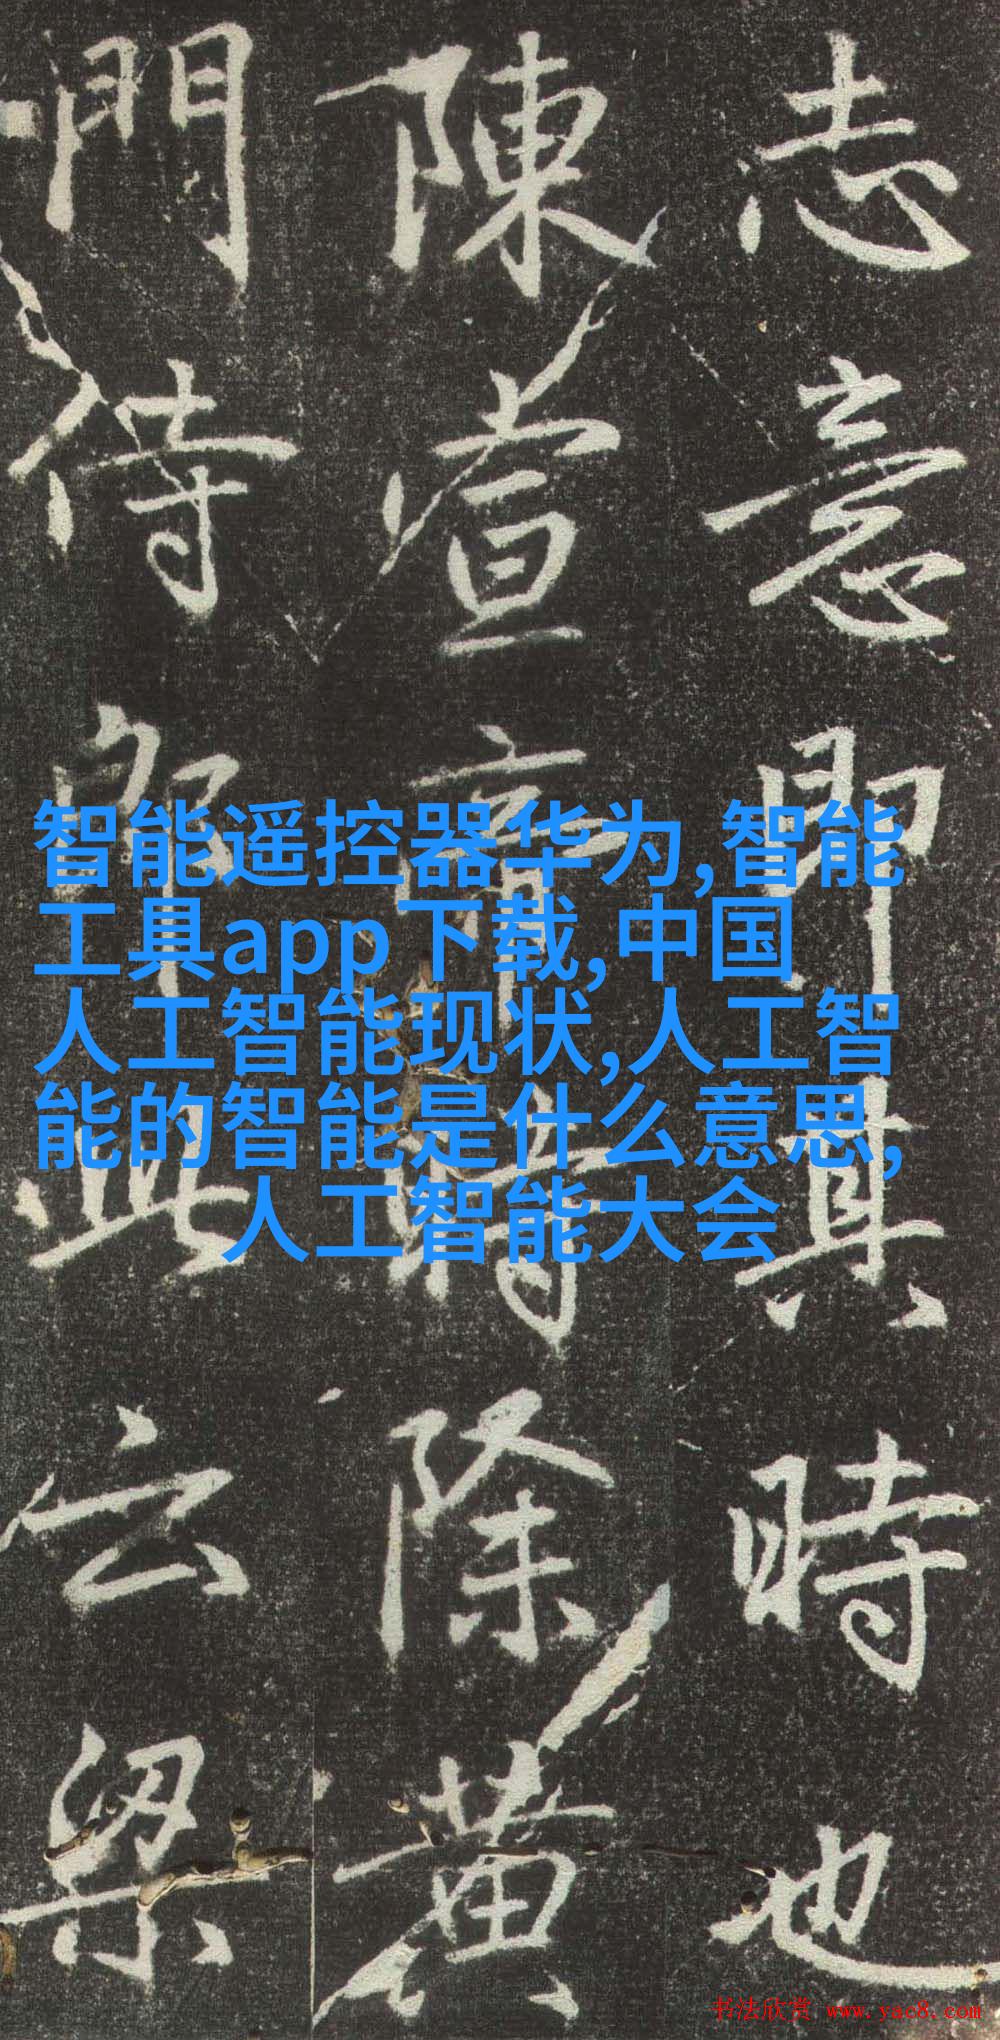 志意即其時也
陳宣帝時除黄
門侍郎此云梁
智能遥控器华为,智能
工具app下载,中国
人工智能现状,人工智
能的智能是什么意思,
人工智能大会
书法欣赏 www.yac8.com